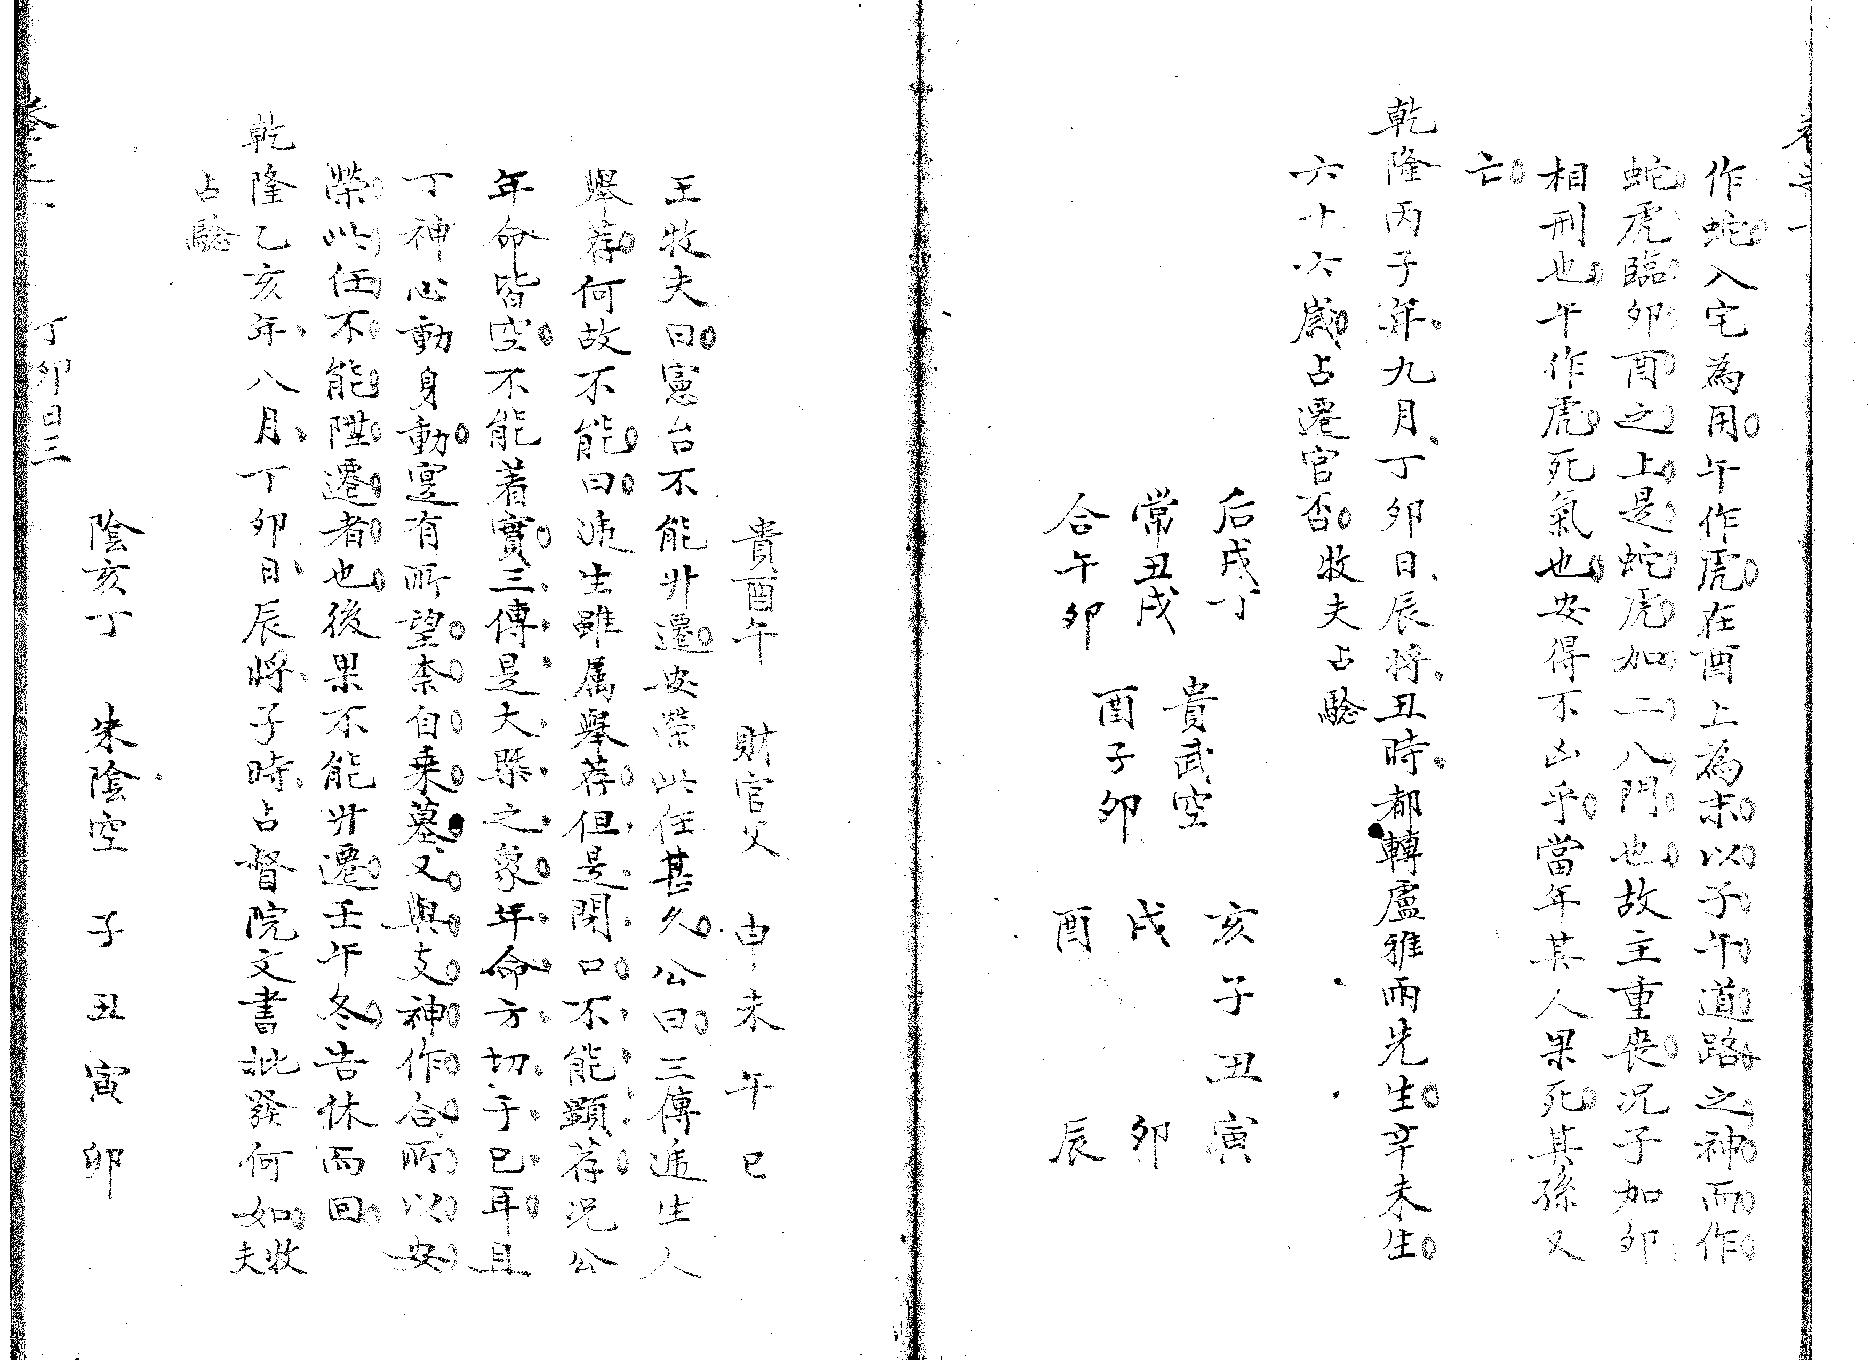 作蛇入宅為用午作虎在酉上為末以子午道路之神而作
蛇虎臨卯酉之上是蛇虎加二八門也故主重喪況子加卯
相刑也午作虎死氣也安得不凶乎當年其人果死其孫又
亡
乾隆丙子年九月丁卯日辰將丑時都轉盧雅雨先生辛未生
六十六歲占遷官否牧夫占驗
后戌丁 亥子丑寅
常丑戌 貴武空 戌 卯
合午卯 酉子卯 酉 辰
貴酉午 財官父 申未午巳
王牧夫曰憲台不能升遷安榮此任甚久公曰三傳遞生人
舉荐何故不能曰遞生雖属舉荐但是閉口不能顯荐況公
年命皆空不能着實三傳是大槩之象年命方切于己耳且
丁神心動身動寔有所望柰自乗墓又與支神作合所以安
榮此任不能陞遷者也後果不能升遷壬午冬告休而回
乾隆乙亥年八月丁卯日辰將子時占督院文書批發何如牧夫
占驗
陰亥丁 朱陰空 子丑寅卯
丁卯日三